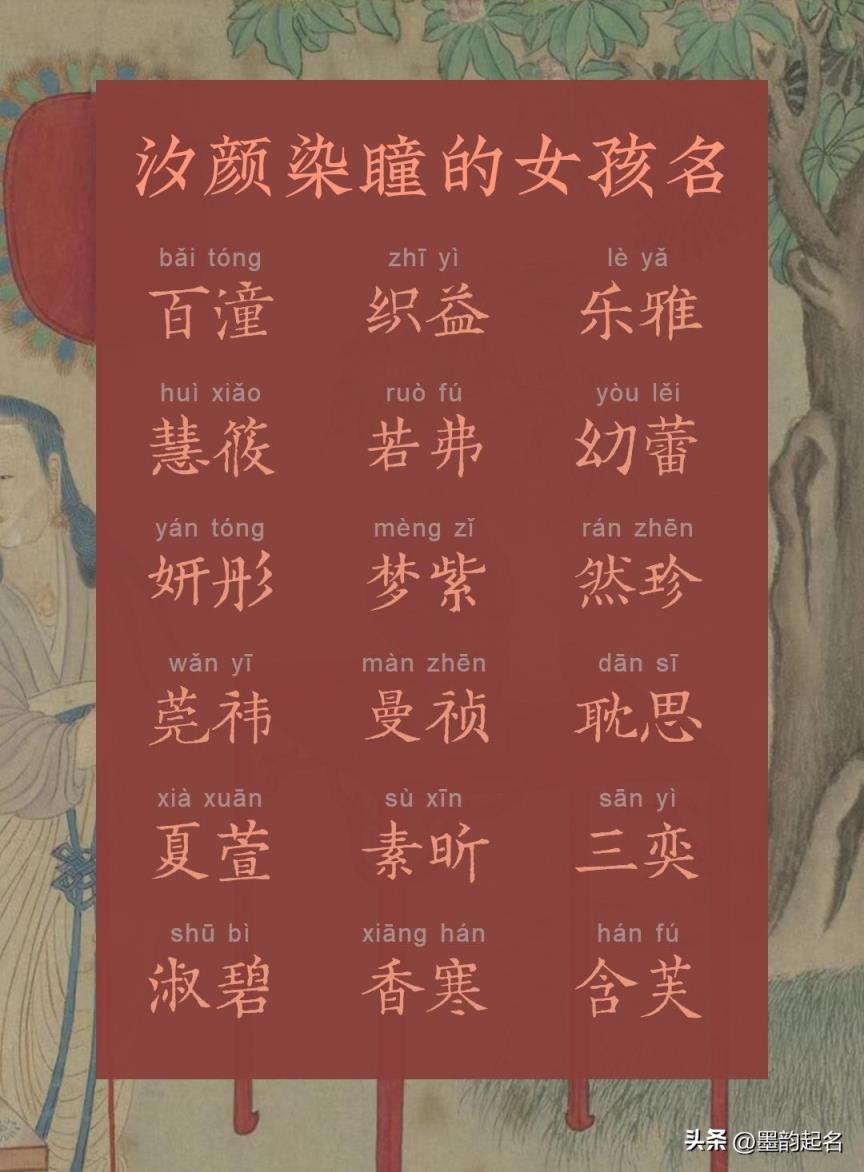 汐颜染瞳的女孩名
bǎi tóng zhī yì lè yǎ
百潼 织益 乐雅
huì xiǎo ruò fú yòu lěi
慧筱 若弗 幼蕾
yán tóng mèng zǐ rán zhēn
妍彤 梦紫 然珍
wǎn yī màn zhēn dān sī
莞祎 曼祯 耽思
xià xuān sù xīn sān yì
夏萱 素昕 三奕
shū bì xiāng hán hán fú
淑碧 香寒 含芙
头条 @墨韵起名